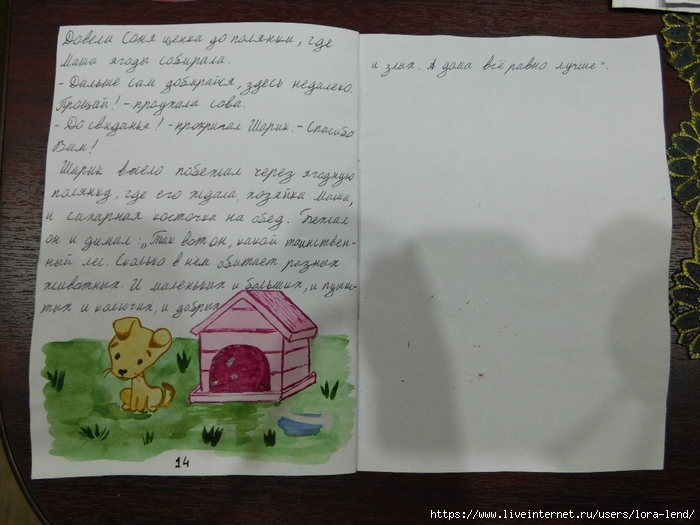 Довела Соня щенка до полянки, где
Маша ягоды собирала.
- Дальше сам добирайся, здесь недалеко.
Прощай! - проухала сова.
- До свиданья! - прокричал Шарик. - Спасибо
Вам!
Шарик весело побежал через ягодную
полянку, где его ждала хозяйка Маша,
и сахарная косточка на обед. Бежал
он и думал: „Так вот он, какой таинствен-
ный лес. Сколько в нём обитает разных
животных. И маленьких и больших, и пушис-
тых и колючих, и добрых
14
и злых. А дома всё равно лучше".
https://www.liveinternet.ru/users/lora-lend/